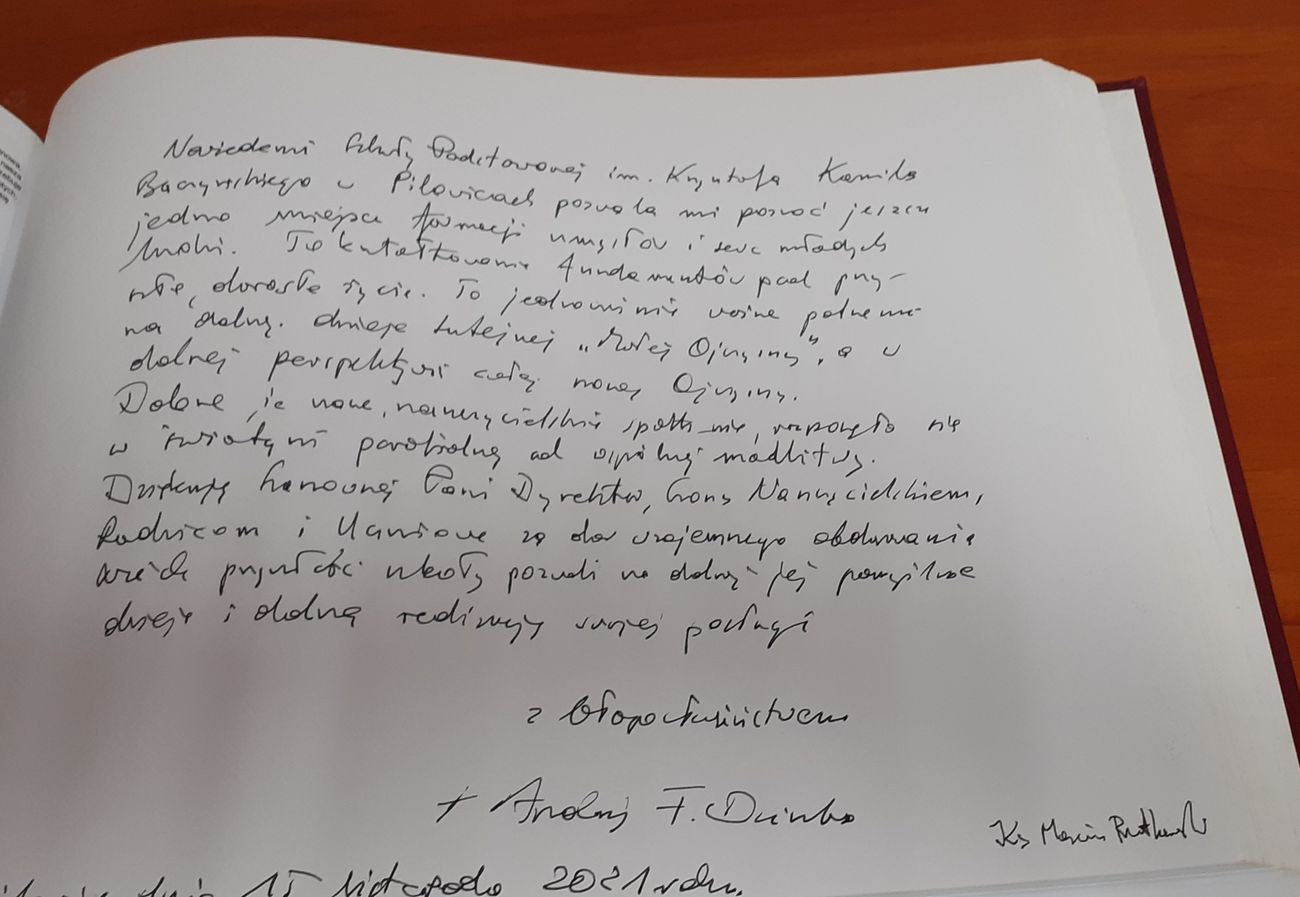 Nawiedzenie Szkoły Podstawowej im. Krzysztofa Kamila
Baczyńskiego w Pilawicach pozwala mi poznać jeszcze
jedno miejsce formacji umysłów i serc młodych
ludzi. To kształtowanie fundamentów pod przy-
szłe, dorosłe życie. To jednocześnie ważne
na dalszą. dzieje tutejszej „Małej Ojczyzny", a w
dalszej perspektywie całej naszej Ojczyzny.
Dobrze, że nasze, nauczycielskie spotkanie, rozpoczęło się
w świątyni parafialnej od wspólnej modlitwy.
Dziękuję Szanownej Pani Dyrektor, Gronu Nauczycielskiemu,
Rodzicom i Uczniom za dar wzajemnego obdarowania
przyszłość szkoły pozwoli na dalszą jej pomyślne
dzieje i dalszą realizację swojej posługi
z błogosławieństwem
+ Andrzej F. Dziuba
Ks Marcin Rutkowski
dnia 15 listopada 2021 roku.